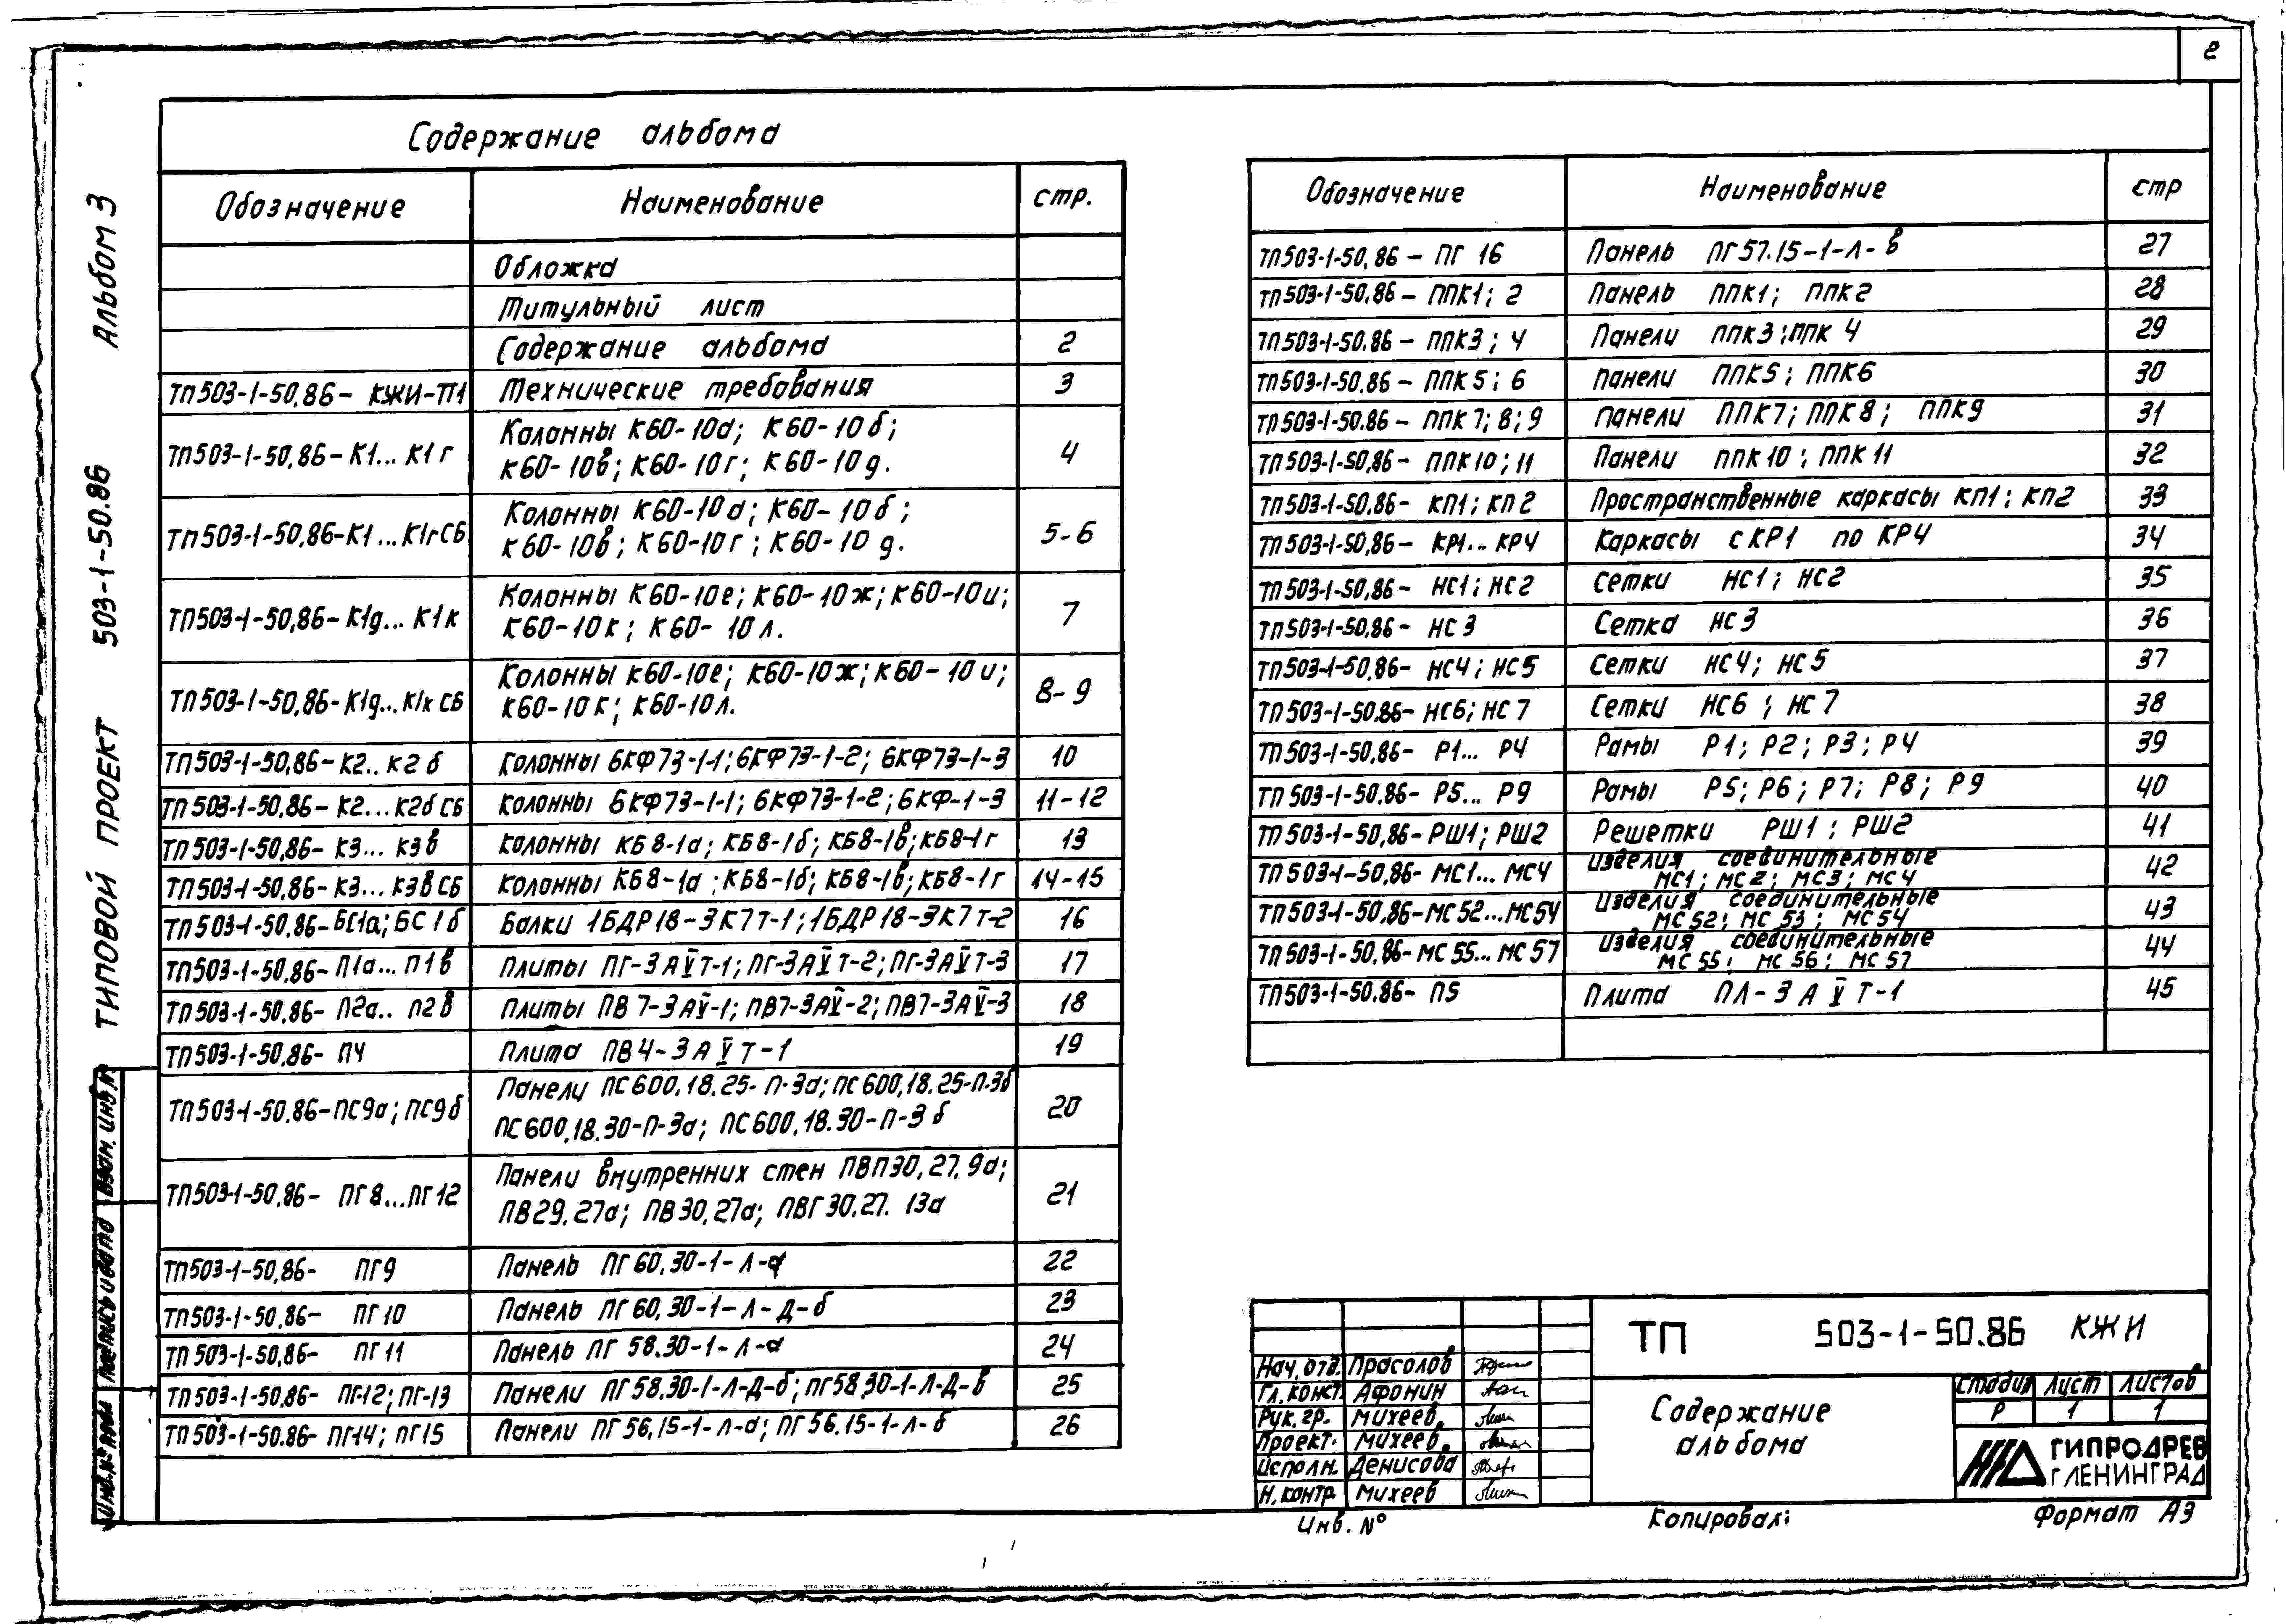 2
Альбом 3
503-1-50.86
ТИПОВОЙ ПРОЕКТ
Содержание альбома
Обозначение Наименование стр.
Обложка
Титульный лист
Содержание альбома 2
ТП503-1-50.86- КЖИ-П1 Технические требования 3
ТП503-1-50.86-К1... К1г Колонны К60-10а; К60-10б;
К60-10в; К60-10г; К60-10д. 4
ТП503-1-50.86-К1...К1гСБ Колонны К60-10а; К60-10б;
К60-10в; К60-10г; К60-10д. 5-6
ТП503-1-50.86-К1д...К1к Колонны К60-10е; К60-10ж; К60-10и;
К60-10к; К60-10л. 7
ТП503-1-50.86-К1д...К1к СБ Колонны К60-10е; К60-10ж; К60-10и;
К60-10к; К60-10л. 8-9
ТП503-1-50.86-К2..К2б Колонны 6КФ73-1-1; 6КФ73-1-2; 6КФ73-1-3 10
ТП503-1-50.86-К2...К2бСБ Колонны 6КФ73-1-1; 6КФ73-1-2; 6КФ-1-3 11-12
ТП503-1-50.86-К3...К3в Колонны КБ8-1а; КБ8-1б; КБ8-1в; КБ8-1г 13
ТП503-1-50.86-К3...К3вСБ Колонны КБ8-1а; КБ8-1б; КБ8-1в; КБ8-1г 14-15
ТП503-1-50.86-БС1а; БС1б Балки 1БДР18-3К7Т-1; 1БДР18-3К7Т-2 16
ТП503-1-50.86-П1а...П1в Плиты ПГ-3АⅤТ-1; ПГ-3АⅤТ-2; ПГ-3АⅤТ-3 17
ТП503-1-50.86-П2а..П2в Плиты ПВ7-3АⅤ-1; ПВ7-3АⅤ-2; ПВ7-3АⅤ-3 18
ТП503-1-50.86-П4 Плита ПВ4-3АⅤТ-1 19
ТП503-1-50.86-ПС9а; ПС9б Панели ПС600.18.25-П-3а; ПС600.18.25-П-3б
ПС600.18.30-П-3а; ПС600.18.30-П-3б 20
ТП503-1-50.86- ПГ8...ПГ12 Панели внутренних стен ПВП30.27.9а;
ПВ29.27а; ПВ30.27а; ПВГ30.27.13а 21
ТП503-1-50.86- ПГ9 Панель ПГ60.30-1-Л-а 22
ТП503-1-50.86- ПГ10 Панель ПГ60.30-1-Л-Д-б 23
ТП503-1-50.86- ПГ11 Панель ПГ58.30-1-Л-а 24
ТП503-1-50.86- ПГ-12; ПГ-13 Панели ПГ58.30-1-Л-Д-б; ПГ58.30-1-Л-Д-в 25
ТП503-1-50.86- ПГ14; ПГ15 Панели ПГ56.15-1-Л-а; ПГ56.15-1-Л-б 26
Обозначение Наименование стр
ТП503-1-50.86- ПГ 16 Панель ПГ57.15-1-Л-в 27
ТП503-1-50.86- ППК1; 2 Панель ППК1; ППК2 28
ТП503-1-50.86- ППК3; 4 Панели ППК3; ППК 4 29
ТП503-1-50.86- ППК5; 6 Панели ППК5; ППК6 30
ТП503-1-50.86- ППК7; 8; 9 Панели ППК7; ППК8; ППК9 31
ТП503-1-50.86- ППК10; 11 Панели ППК10; ППК11 32
ТП503-1-50.86- КП1; КП2 Пространственные каркасы КП1; КП2 33
ТП503-1-50.86- КР1...КР4 Каркасы с КР1 по КР4 34
ТП503-1-50.86- НС1; НС2 Сетки НС1; НС2 35
ТП503-1-50.86- НС3 Сетка НС3 36
ТП503-1-50.86- НС4; НС5 Сетки НС4; НС5 37
ТП503-1-50.86- НС6; НС7 Сетки НС6; НС7 38
ТП503-1-50.86- Р1... Р4 Рамы Р1; Р2; Р3; Р4 39
ТП503-1-50.86- Р5... Р9 Рамы Р5; Р6; Р7; Р8; Р9 40
ТП503-1-50.86-РШ1; РШ2 Решетки РШ1; РШ2 41
ТП503-1-50.86- МС1... МС4 Изделия соединительные
МС1; МС2; МС3; МС4 42
ТП503-1-50.86-МС52...МС54 Изделия соединительные
МС52; МС53; МС54 43
ТП503-1-50.86-МС55...МС57 Изделия соединительные
МС55; МС56; МС57 44
ТП503-1-50.86- П5 Плита ПЛ-3АⅤТ-1 45
ТП 503-1-50.86 КЖИ
Нач. отд. Прасолов
Гл. конст. Афонин
Рук. гр. Михеев
Проект. Михеев
Исполн. Денисова
Н. контр Михеев
Содержание
альбома
Стадия Лист Листов
Р 1 1
ГИПРОДРЕВ
г ЛЕНИНГРАД
Инв. №
Копировал:
Формат А3
Взам. инв. №
Подпись и дата
Инв. № подл